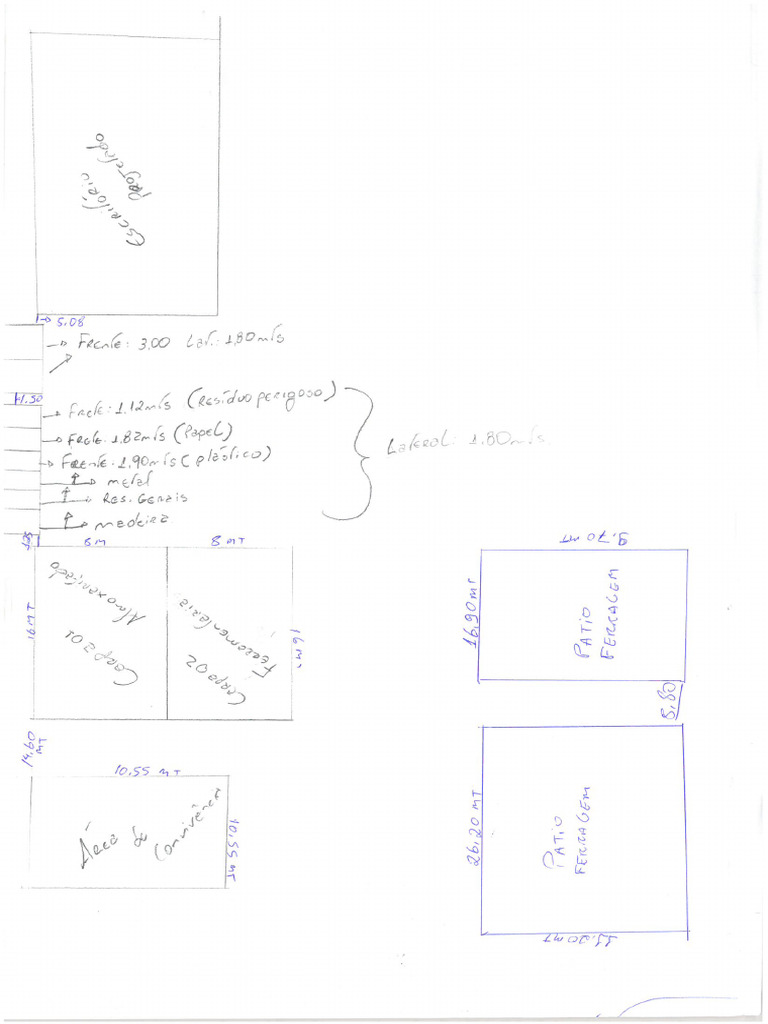 Escritório
Projetado
5,08
Frente: 3,00 Lat.: 1,80mts
1,50
Frete: 1.12mts (Resíduo perigoso)
Frete: 1.82mts (Papel)
Frente: 1.90mts (plástico)
metal
Res. Gerais
madeira
Lateral: 1.80mts
8M
8 MT
16 MT
Almoxarifado
Carpa 01
Ferramentaria
Carpa 02
16 m
14.60
MT
10.55 MT
Área de
Convivência
10.55 MT
9.70 MT
16.90 MT
PATIO
FERRAGEM
8.80
26.20 MT
PATIO
FERRAGEM